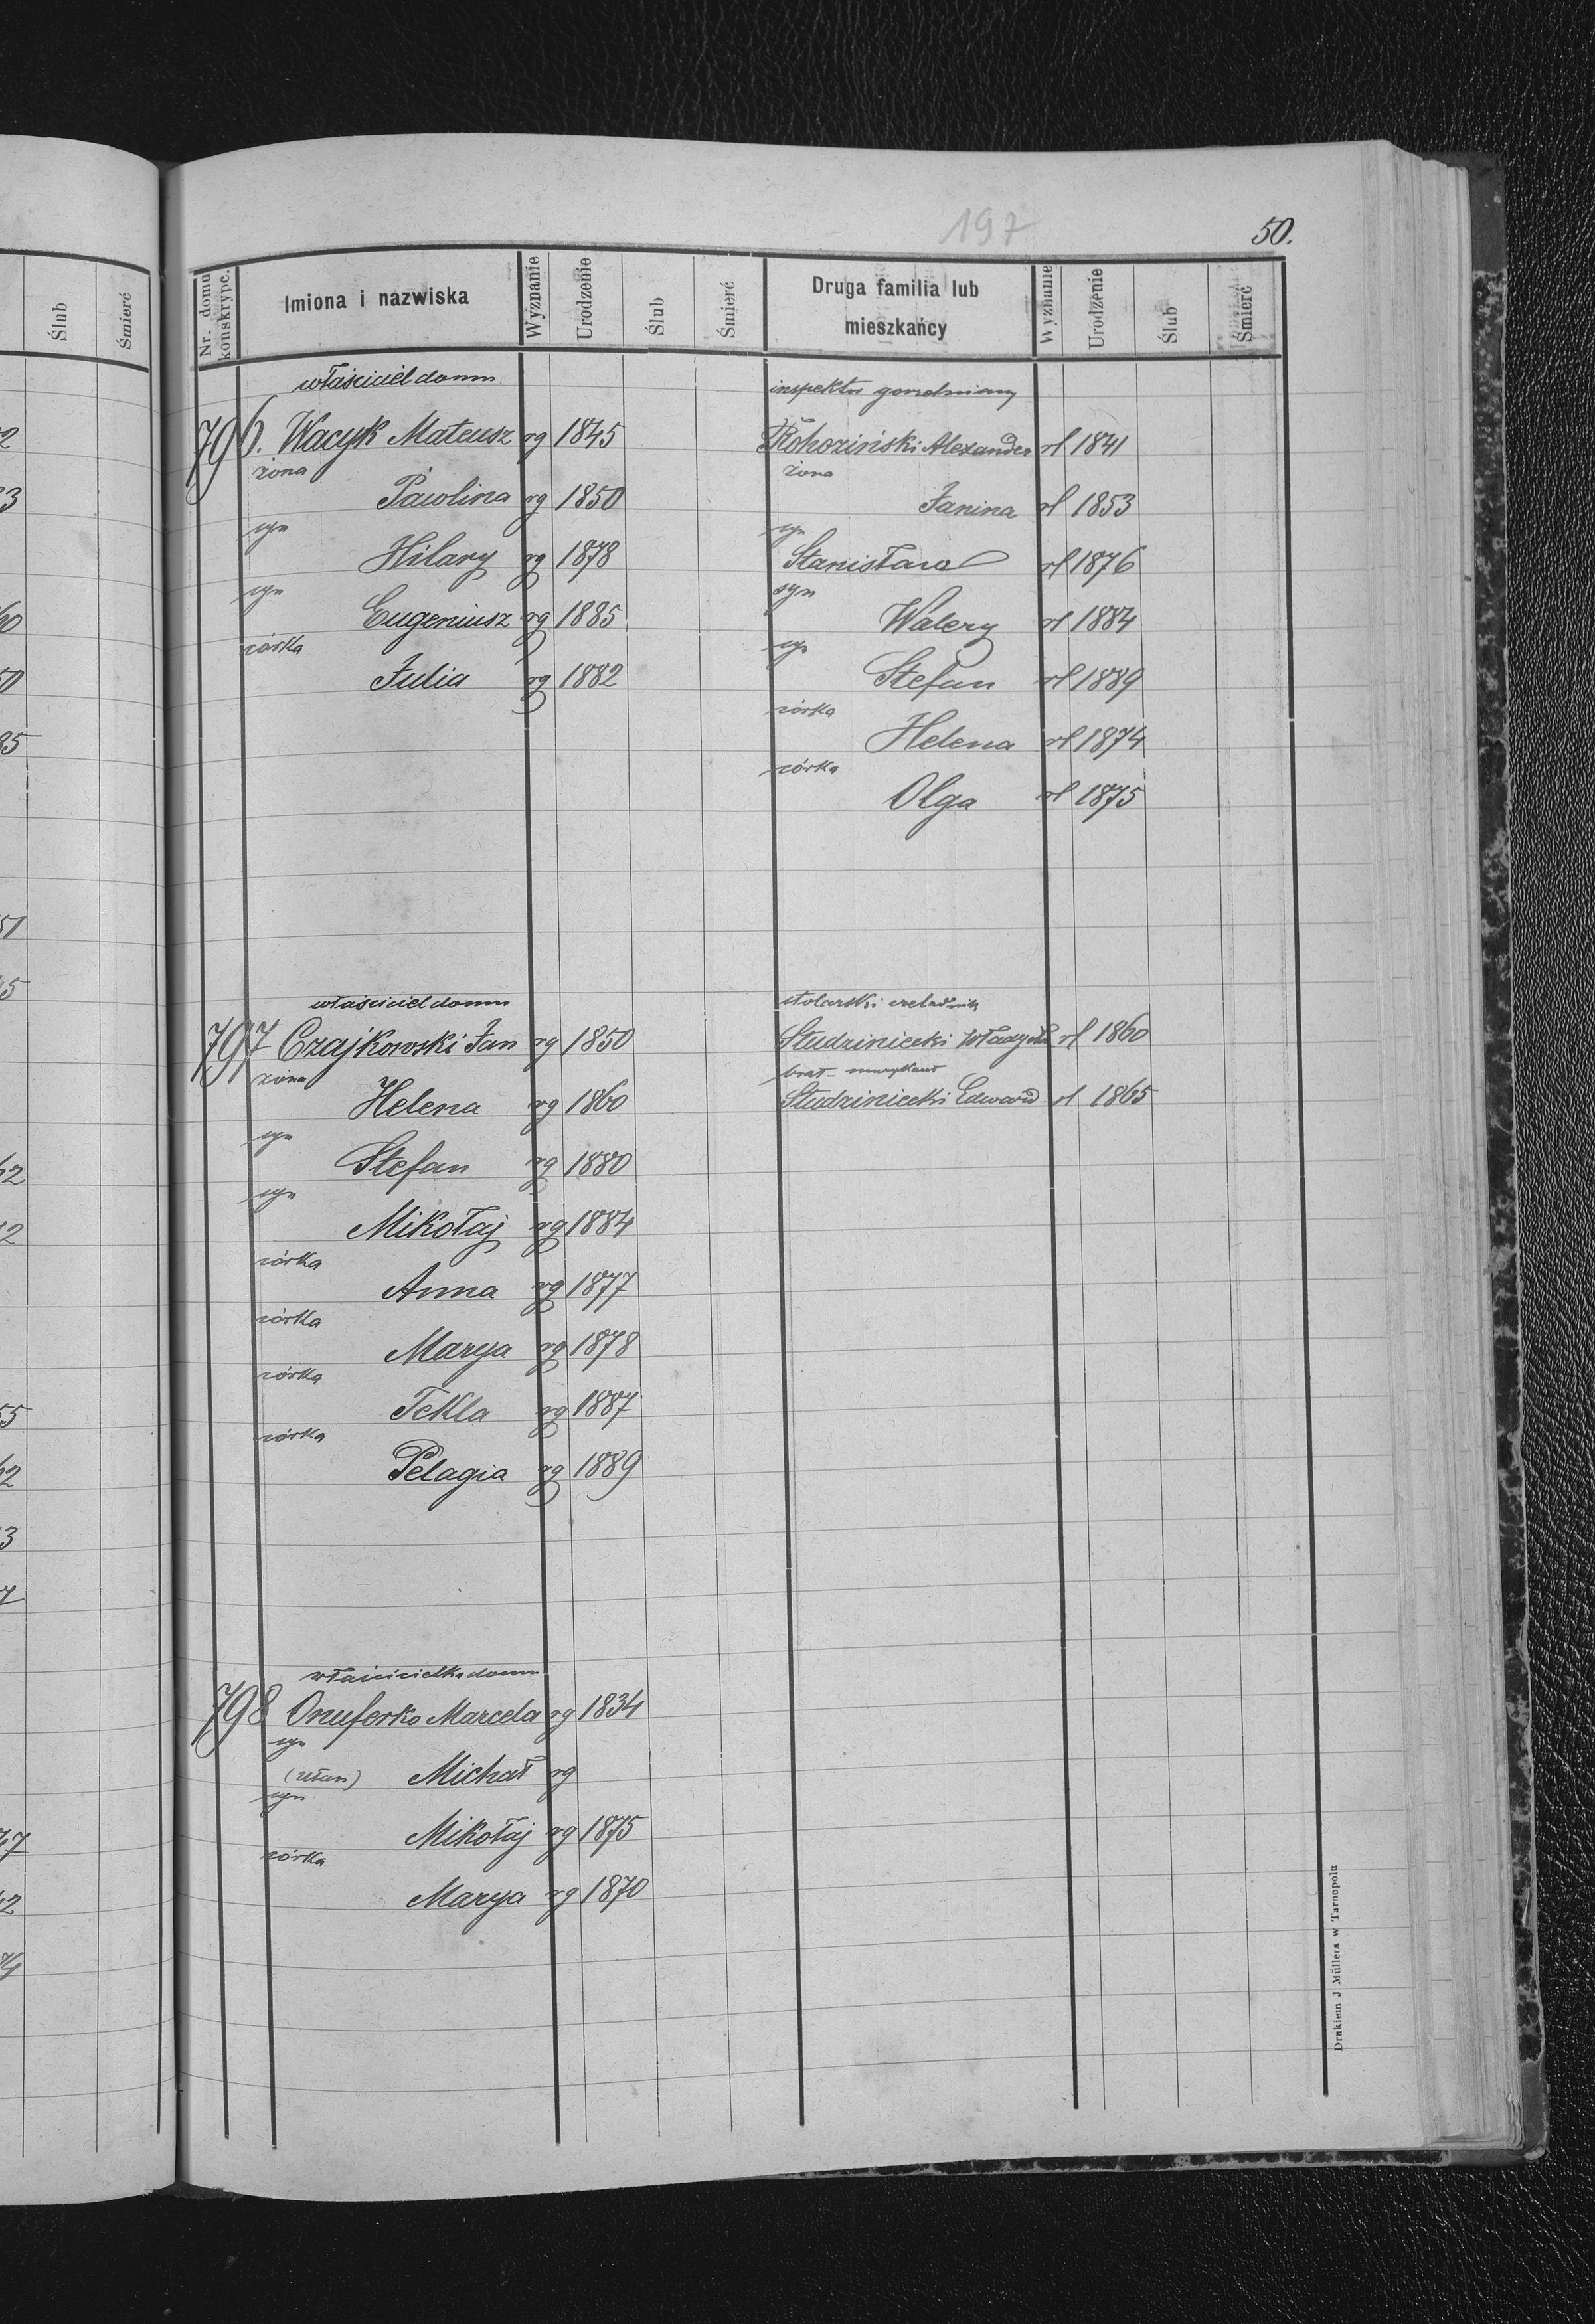 197
50.
Nr. domu konskrypc.
Imiona i nazwiska
Wyznanie
Urodzenie
Ślub
Śmierć
Druga familia lub mieszkańcy
Wyznanie
Urodzenie
Ślub
Śmierć
właściciel domu
796. Wacyk Mateusz rg 1845
żona
Pawlina rg 1850
syn
Hilary rg 1878
syn
Eugeniusz rg 1885
córka
Julia rg 1882
inspektor gorzelniany
Rohoziński Alexander rl 1841
żona
Janina rl 1853
syn
Stanisław rl 1876
syn
Walery rl 1884
syn
Stefan rl 1889
córka
Helena rl 1874
córka
Olga rl 1875
właściciel domu
797 Czajkowski Jan rg 1850
żona
Helena rg 1860
syn
Stefan rg 1880
syn
Mikołaj rg 1884
córka
Anna rg 1877
córka
Marya rg 1878
córka
Tekla rg 1887
córka
Pelagia rg 1889
stolarski czeladnik
Studziniecki rl 1860
brat - muzykant
Studziniecki Edward rl 1865
właścicielka domu
798 Onuferko Marcela rg 1834
syn
(ułan) Michał rg
syn
Mikołaj rg 1875
córka
Marya rg 1870
Drukiem J Müllera w Tarnopolu
Ślub
Śmierć